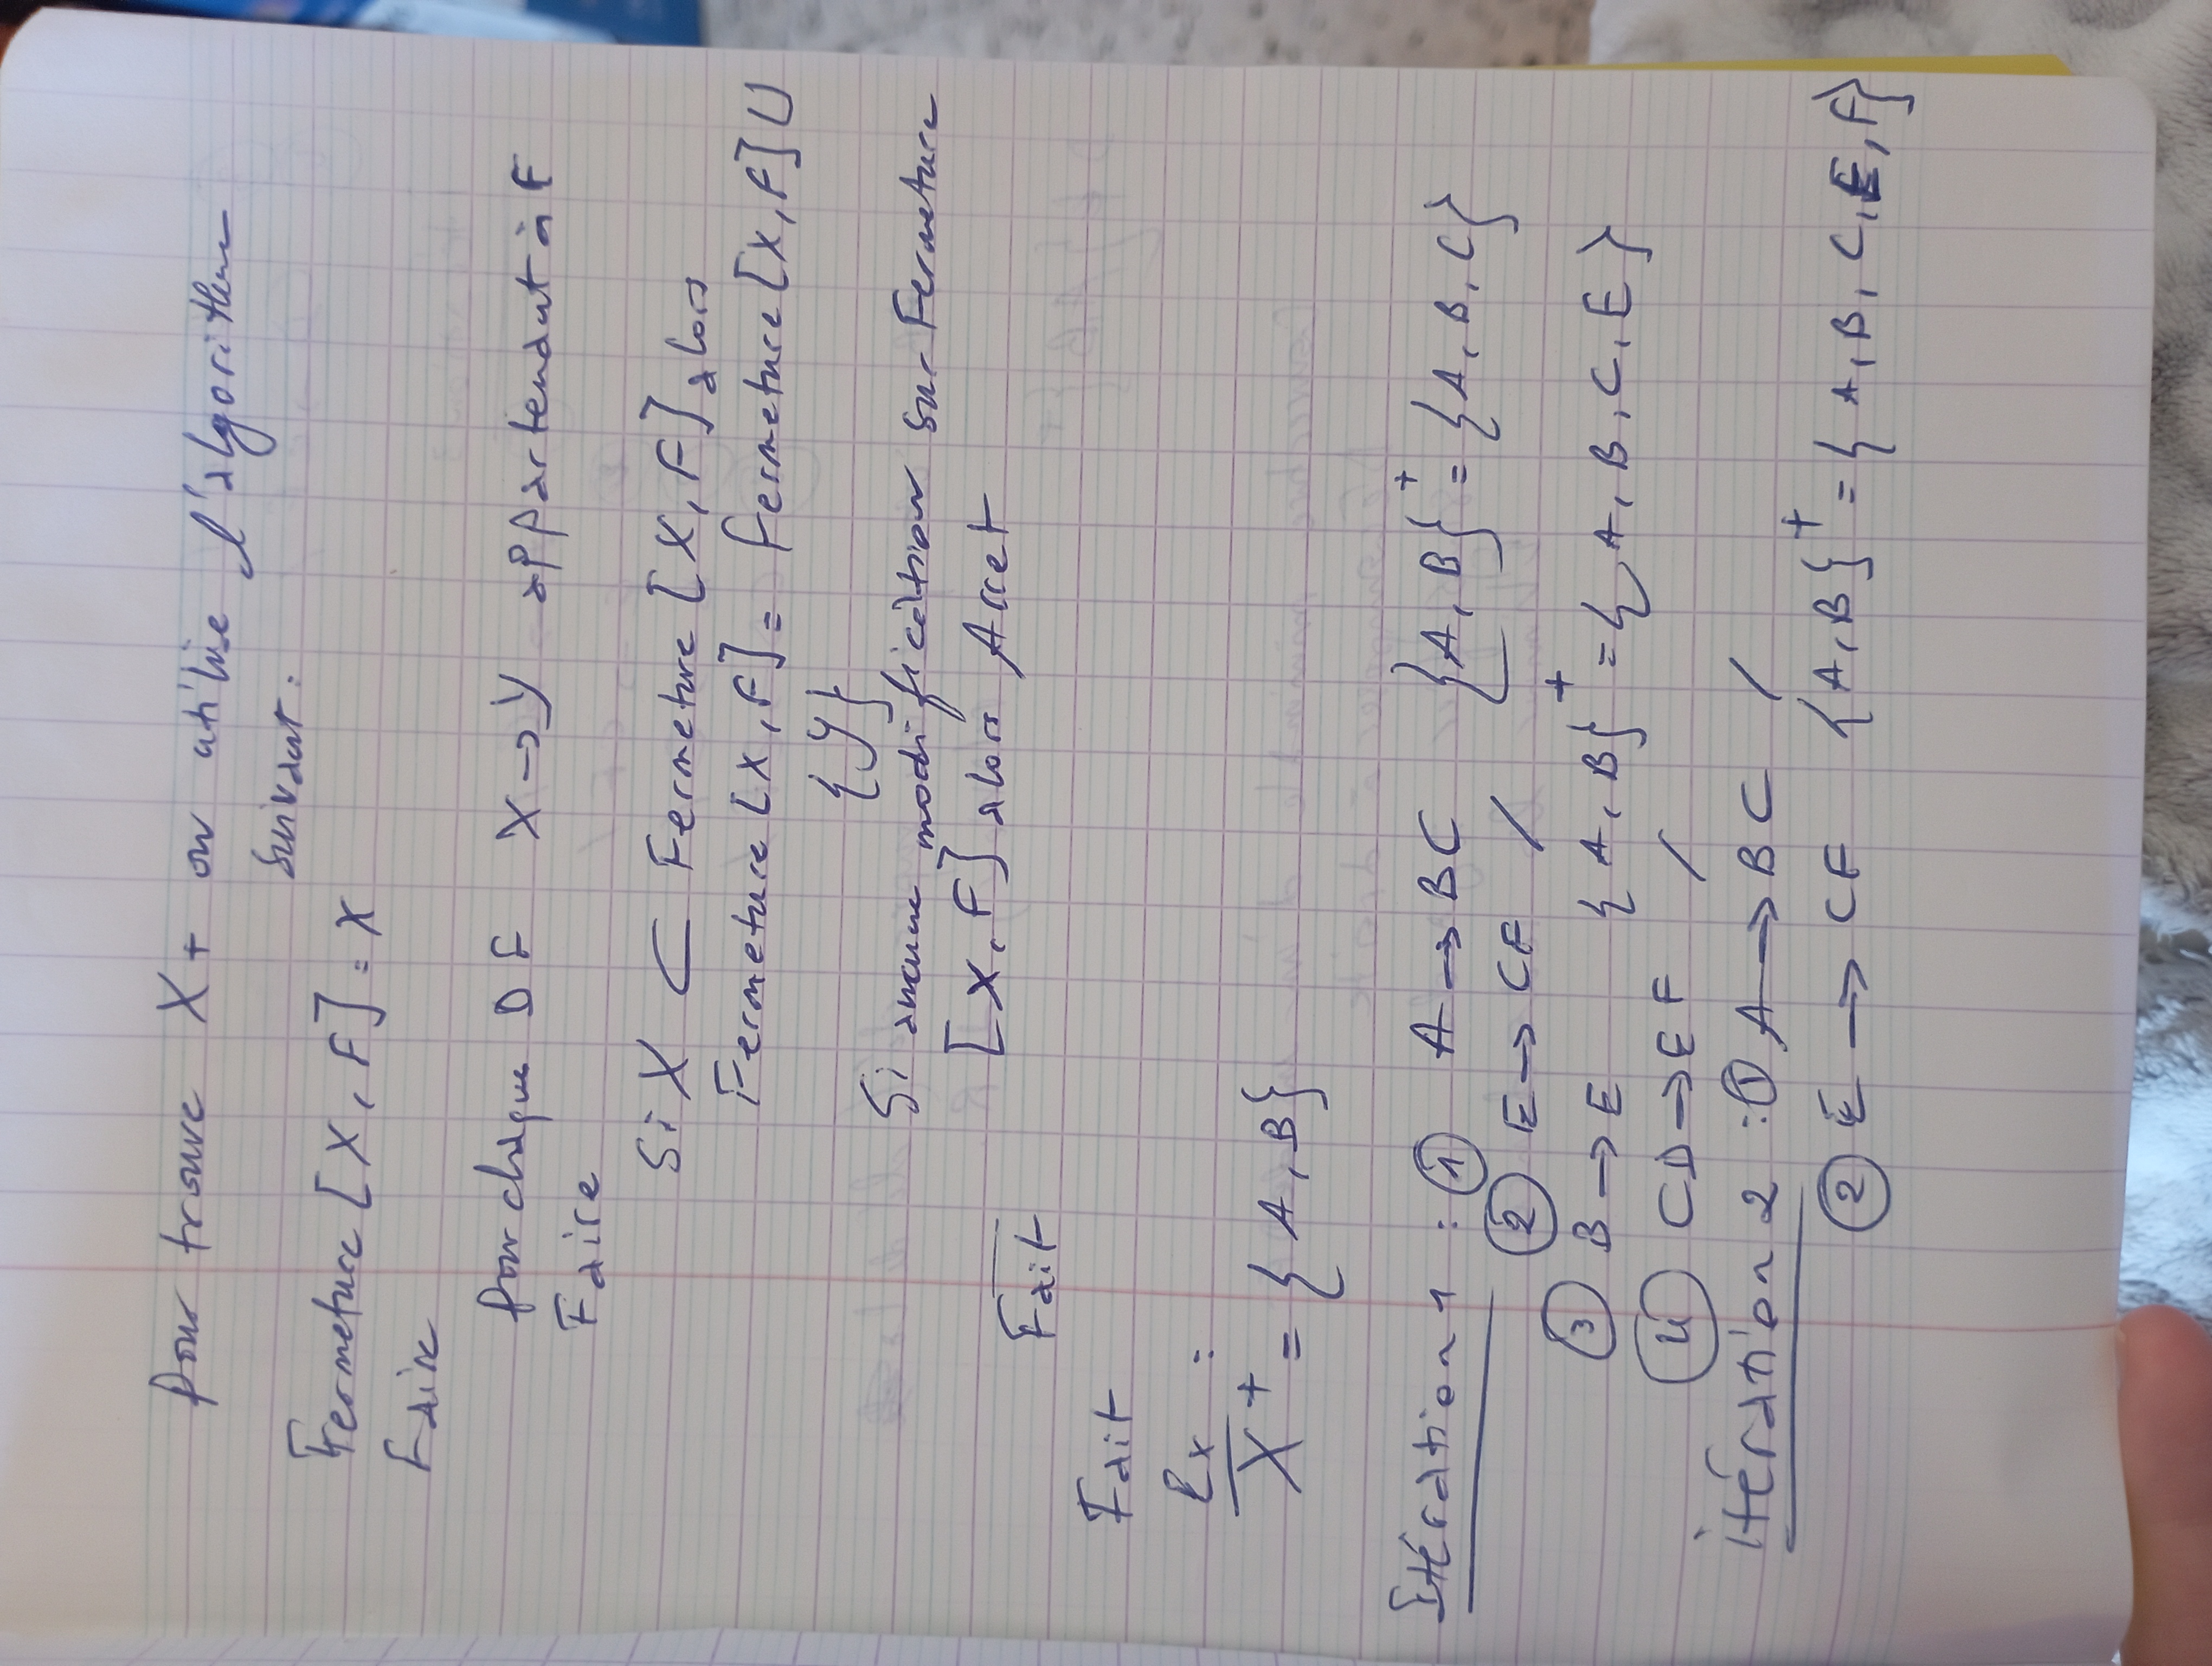 pour trouve X+ on utilise l'algorithme
suivant :
Fermeture [X, F] = X
Faire
pour chaque DF X → Y appartenant à F
Faire
Si X ⊂ Fermeture [X, F] alors
Fermeture [X, F] = fermeture [X, F] U
{Y}
Si aucune modification sur Fermeture
[X, F] alors Arret
Fait
Fait
Ex :
X⁺ = {A, B}
Itération 1 : ① A → BC {A, B}⁺ = {A, B, C}
② E → CF /
③ B → E {A, B}⁺ = {A, B, C, E}
④ CD → EF /
itération 2 : ① A → BC /
② E → CF {A, B}⁺ = {A, B, C, E, F}